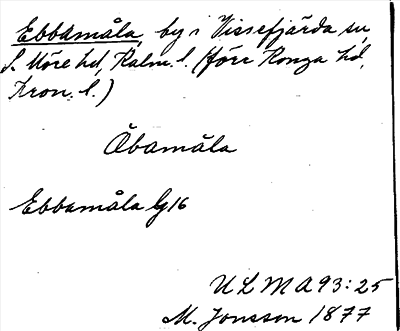 Ebbamåla, by i Vissefjärda sn,
S. Möre hd, Kalm. l. (förr Konga hd,
Kron. l.)
Åbamåla
Ebbamåla G16
ULMA 93:25
M. Jonsson 1877